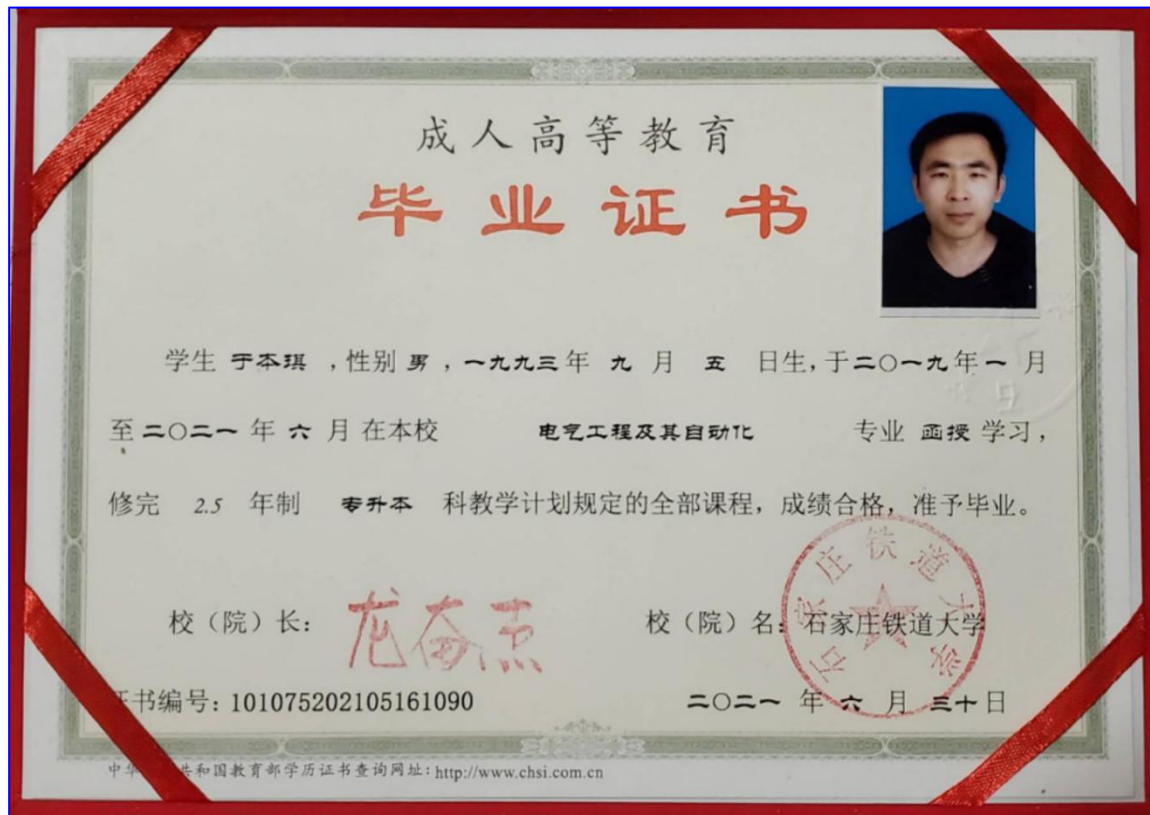 成人高等教育
毕业证书
学生 于本琪 ，性别 男 ，一九九三年 九 月 五 日生，于二〇一九年一 月
至二〇二一 年 六 月在本校 电气工程及其自动化 专业 函授 学习，
修完 2.5 年制 专升本 科教学计划规定的全部课程，成绩合格，准予毕业。
校（院）长： 龙奋杰 校（院）名：石家庄铁道大学
石家庄铁道大学
书编号：101075202105161090 二〇二一 年 六 月 三十日
中华 共和国教育部学历证书查询网址：http://www.chsi.com.cn